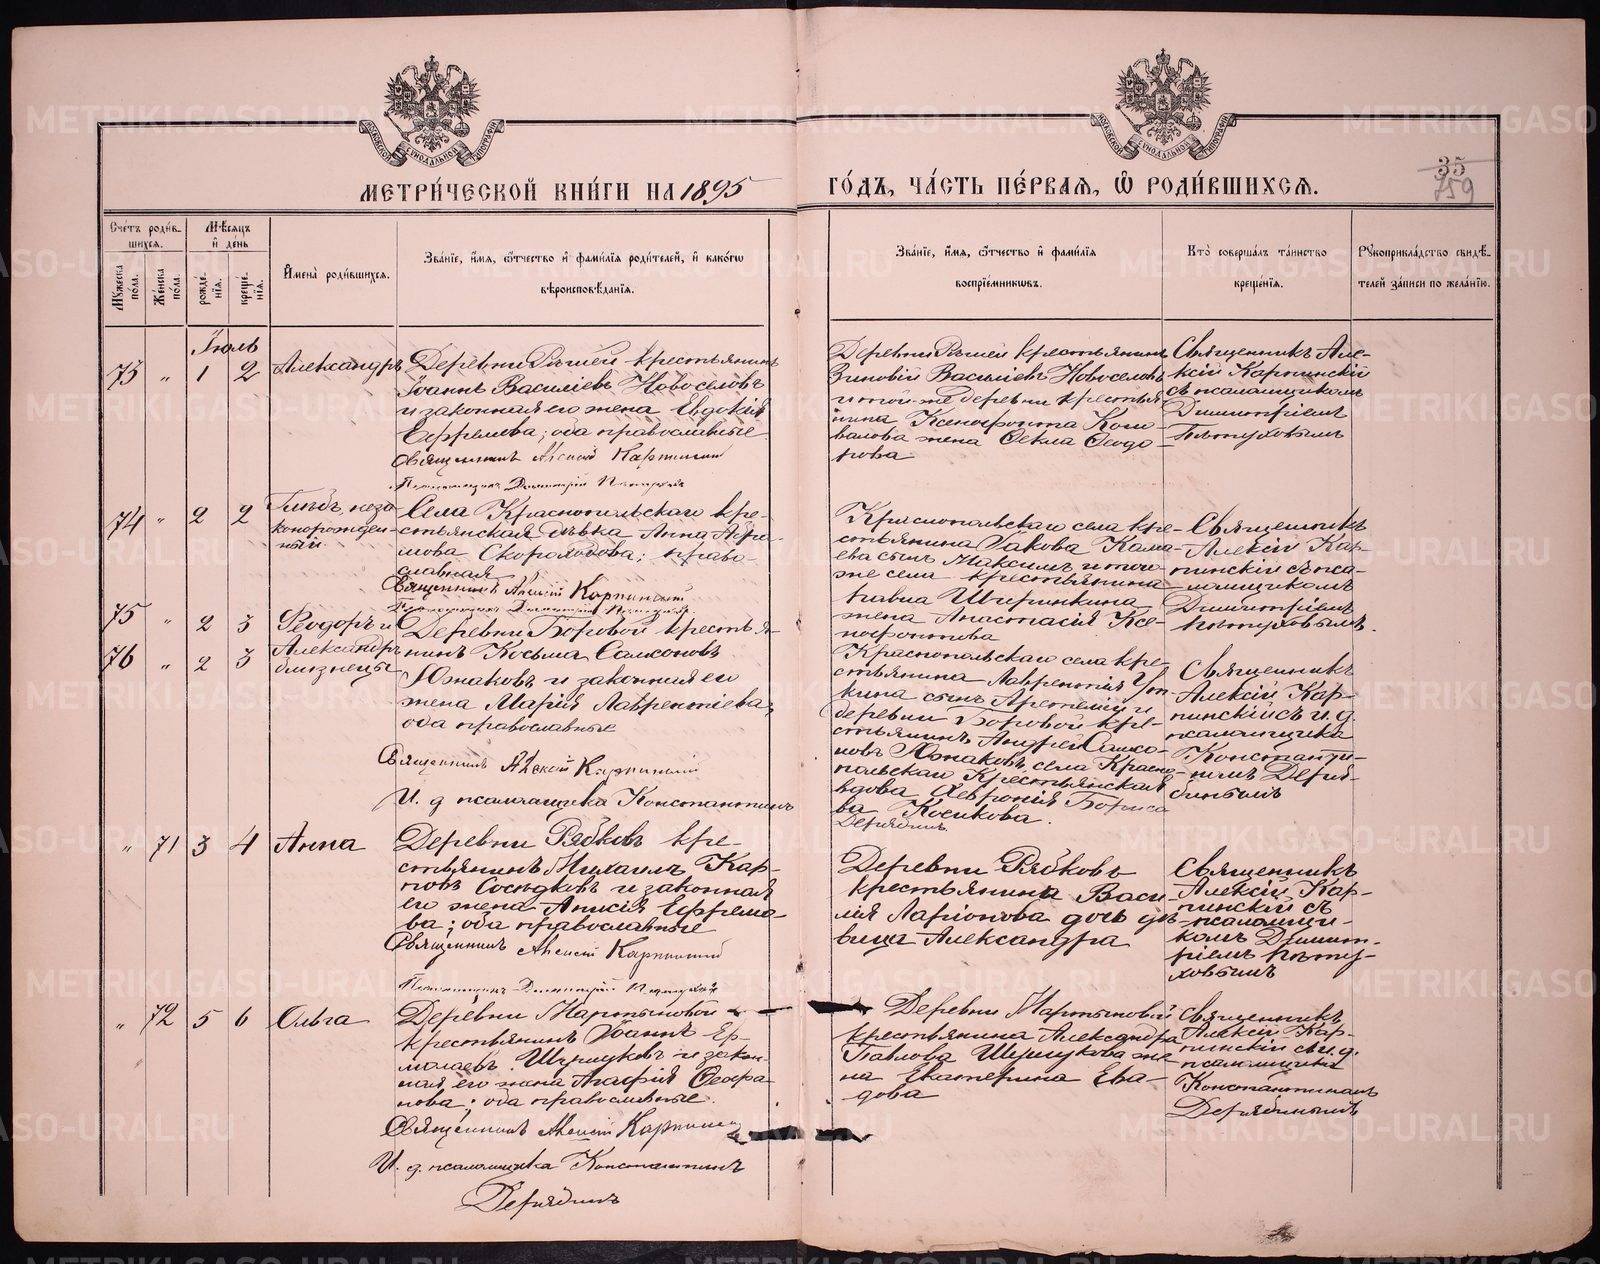 МЕТРИ́ЧЕСКОЙ КНИ́ГИ НА 1895
ГО́ДЪ, ЧА́СТЬ ПЕ́РВАЯ, Ѽ РОДИ́ВШИХСЯ.
35
759
Сче́тъ роди́в-
шихся.
Мѣ́сяцъ
и҆ де́нь
Му́жеска
по́ла.
Же́нска
по́ла.
рожде́-
нїя.
креще́-
нїя.
И҆мена̀ роди́вшихся.
Зва́нїе, и҆́мя, ѻ҆́тчество и҆ фами́лїя роди́телей, и҆ како́гѡ
вѣроисповѣ́данїя.
Зва́нїе, и҆́мя, ѻ҆́тчество и҆ фами́лїя
воспрїе́мниковъ.
Кто̀ соверша́лъ та́инство
креще́нїя.
Рꙋкоприкла́дство свидѣ́-
телей за́писи по жела́нїю.
Іюль
73 " 1 2
Александръ
Деревни крестьянинъ
Іоаннъ Василіевъ Новоселовъ
и законная его жена Евдокія
Ефремова; оба православные
Священникъ Алексій Карпинскій
Псаломщикъ Димитрій Пѣтуховъ
Деревни крестьянинъ
Зиновій Василіевъ Новоселовъ
и той-же деревни крестья-
нина Ксенофонта
жена Ѳекла Ѳеодо-
рова
Священникъ Але-
ксій Карпинскій
съ псаломщикомъ
Димитріемъ
Пѣтуховымъ
74 " 2 2
Глѣбъ, неза-
конорожден-
ный
Села Краснопольскаго кре-
стьянская дѣвка Анна Абра-
мова Скороходова; право-
славная
Священникъ Алексій Карпинскій
Псаломщикъ Димитрій Пѣтуховъ
Краснопольскаго села кре-
стьянина Іакова Кама-
ева сынъ Максимъ и того
же села крестьянина
Павла Ширинкина
жена Анастасія Ксе-
нофонтова
Священникъ
Алексій Кар-
пинскій съ пса-
ломщикомъ
Димитріемъ
Пѣтуховымъ.
75 " 2 3
76 " 2 3
Ѳеодоръ и
Александръ
близнецы
Деревни Боровой крестья-
нинъ Косьма Самсоновъ
Южаковъ и законная его
жена Марія Лаврентіева;
оба православные
Священникъ Алексій Карпинскій
И. д. псаломщика Константинъ
Дерябинъ.
Краснопольскаго села кре-
стьянина Лаврентія
сынъ Артемій и
деревни Боровой кре-
стьянинъ Андрей Самсо-
новъ Южаковъ, села Красно-
польскаго крестьянская
вдова Ѳевронія Бориса-
ва Косикова.
Священникъ
Алексій Кар-
пинскій съ и. д.
псаломщика
Константи-
номъ Деря-
бинымъ
" 71 3 4
Анна
Деревни Рябковъ кре-
стьянинъ Михаилъ Кар-
повъ Сосѣдковъ и законная
его жена Анисія Ефремо-
ва; оба православные
Священникъ Алексій Карпинскій
Псаломщикъ Димитрій Пѣтуховъ
Деревни Рябковъ
крестьянина Васи-
лія Ларіонова дочь дѣ-
вица Александра
Священникъ
Алексій Кар-
пинскій съ
псаломщи-
комъ Димит-
ріемъ Пѣту-
ховымъ
" 72 5 6
Ольга
Деревни Мартыновой
крестьянинъ Іоаннъ Ер-
молаевъ Шушуковъ и закон-
ная его жена Агафія Ѳеофа-
нова; оба православные.
Священникъ Алексій Карпинскій
И. д. псаломщика Константинъ
Дерябинъ
Деревни Мартыновой
крестьянина Александра
Павлова Шушукова же-
на Екатерина
Священникъ
Алексій Кар-
пинскій съ и. д.
псаломщика
Константиномъ
Дерябинымъ
METRIKI.GASO-URAL.RU